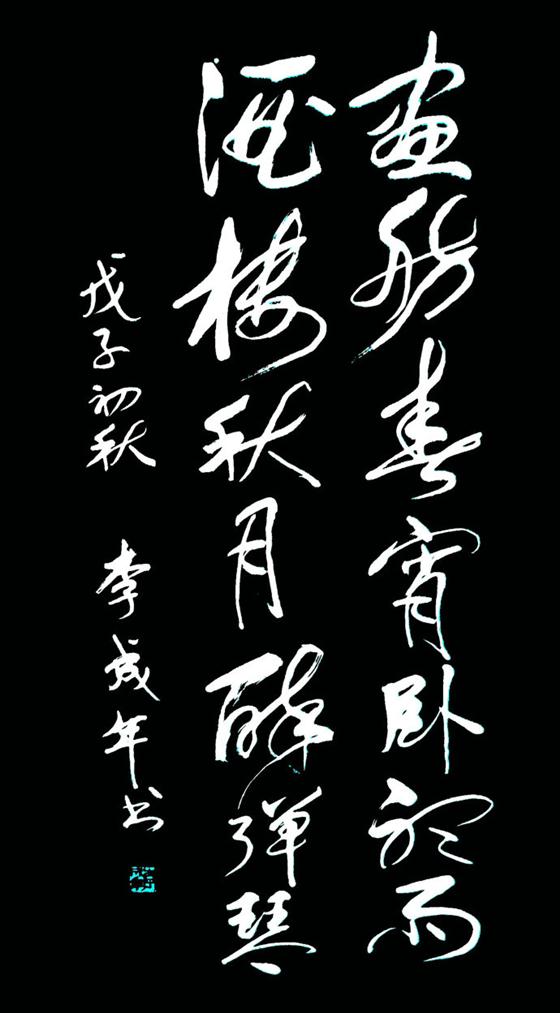 画舫春宵卧听雨
酒楼秋月醉弹琴
戊子初秋 李成年书